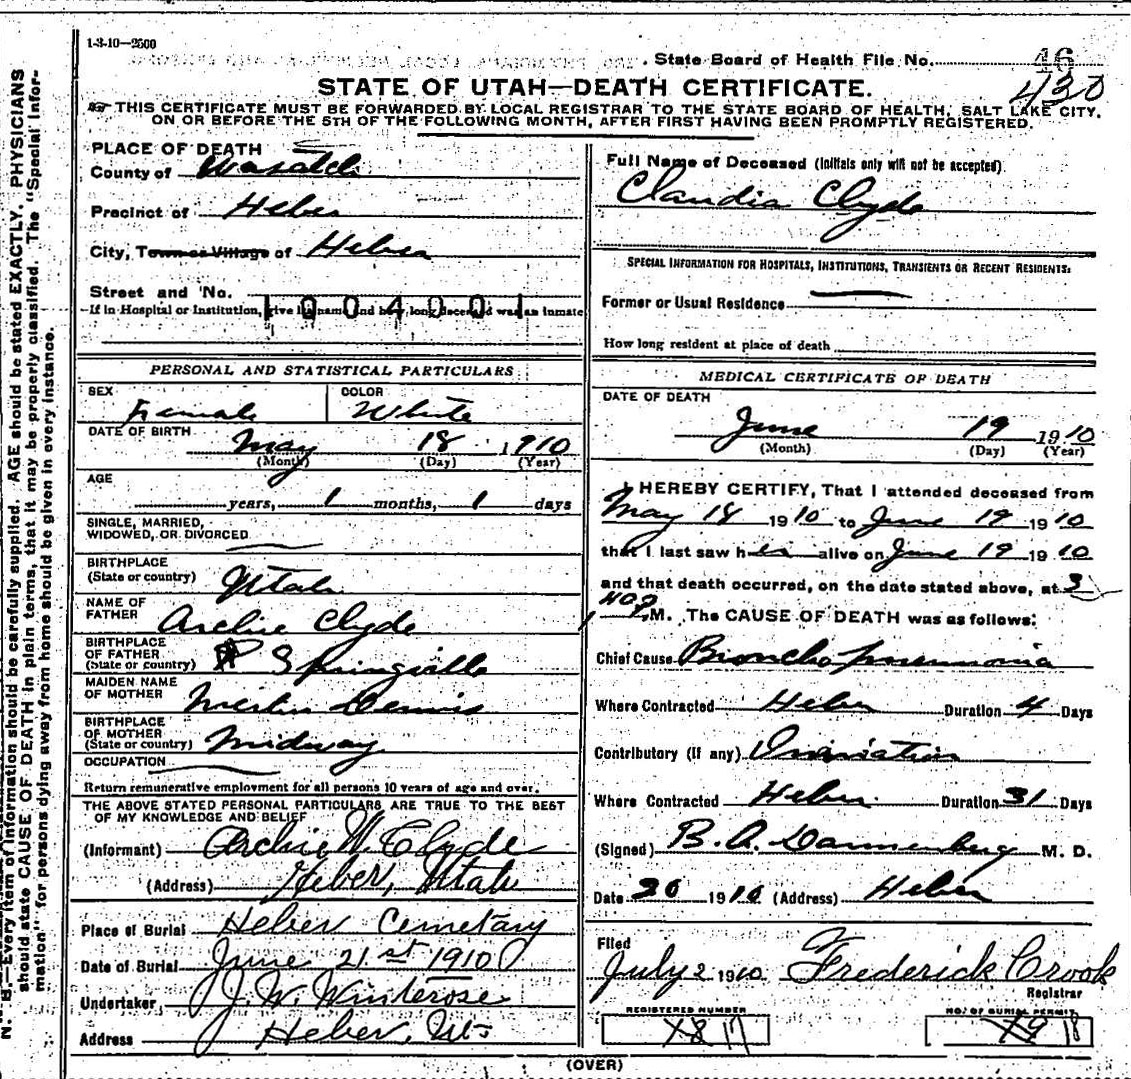 1-3-10—2500
State Board of Health File No. 46
430
STATE OF UTAH—DEATH CERTIFICATE.
THIS CERTIFICATE MUST BE FORWARDED BY LOCAL REGISTRAR TO THE STATE BOARD OF HEALTH, SALT LAKE CITY,
ON OR BEFORE THE 5TH OF THE FOLLOWING MONTH, AFTER FIRST HAVING BEEN PROMPTLY REGISTERED.
PLACE OF DEATH
County of Wasatch
Precinct of Heber
City, Town or Village of Heber
Street and No.
1004001
If in Hospital or Institution, give its name and how long deceased was an inmate
PERSONAL AND STATISTICAL PARTICULARS
SEX Female
COLOR White
DATE OF BIRTH May 18, 1910
(Month) (Day) (Year)
AGE
years, 1 months, 1 days
SINGLE, MARRIED,
WIDOWED, OR DIVORCED
BIRTHPLACE
(State or country) Utah
NAME OF
FATHER Archie Clyde
BIRTHPLACE
OF FATHER
(State or country) Springville
MAIDEN NAME
OF MOTHER Dennis
BIRTHPLACE
OF MOTHER
(State or country) Midway
OCCUPATION
Return remunerative employment for all persons 10 years of age and over.
THE ABOVE STATED PERSONAL PARTICULARS ARE TRUE TO THE BEST
OF MY KNOWLEDGE AND BELIEF
(Informant) Archie W. Clyde
(Address) Heber, Utah
Place of Burial Heber Cemetary
Date of Burial June 21st 1910
Undertaker J. W. Winterose
Address Heber, Ut
Full Name of Deceased (Initials only will not be accepted)
Claudia Clyde
SPECIAL INFORMATION FOR HOSPITALS, INSTITUTIONS, TRANSIENTS OR RECENT RESIDENTS:
Former or Usual Residence
How long resident at place of death
MEDICAL CERTIFICATE OF DEATH
DATE OF DEATH
June 19 1910
(Month) (Day) (Year)
I HEREBY CERTIFY, That I attended deceased from
May 18 1910 to June 19 1910
that I last saw her alive on June 19 1910
and that death occurred, on the date stated above, at 3
40 P.M. The CAUSE OF DEATH was as follows:
Chief Cause Broncho pneumonia
Where Contracted Heber Duration 4 Days
Contributory (if any) Inanation
Where Contracted Heber Duration 31 Days
(Signed) B. A. Dannenberg M. D.
Date 20 1910 (Address) Heber
Filed
July 2 1910 Frederick Crook
Registrar
REGISTERED NUMBER
17
NO. OF BURIAL PERMIT
18
(OVER)
N. B.—Every item of information should be carefully supplied. AGE should be stated EXACTLY. PHYSICIANS
should state CAUSE OF DEATH in plain terms, that it may be properly classified. The "Special Infor-
mation" for persons dying away from home should be given in every instance.